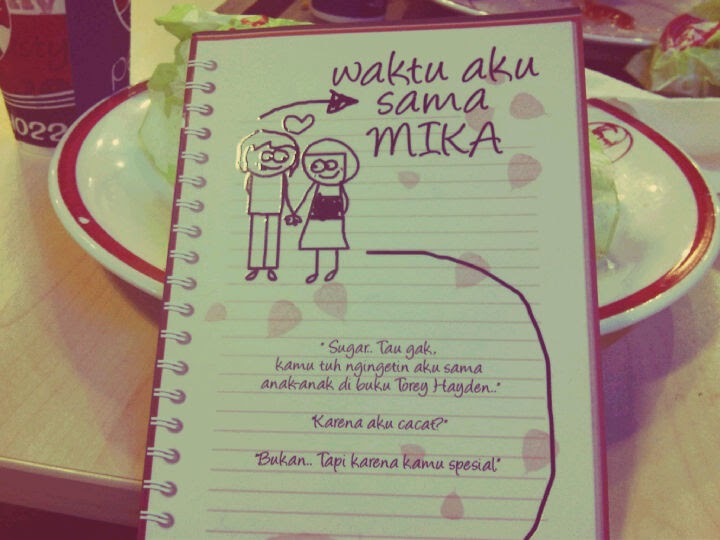 waktu aku
sama
MIKA
" Sugar.. Tau gak,
kamu tuh ngingetin aku sama
anak-anak di buku Torey Hayden.."
"Karena aku cacat?"
"Bukan.. Tapi karena kamu spesial"
022